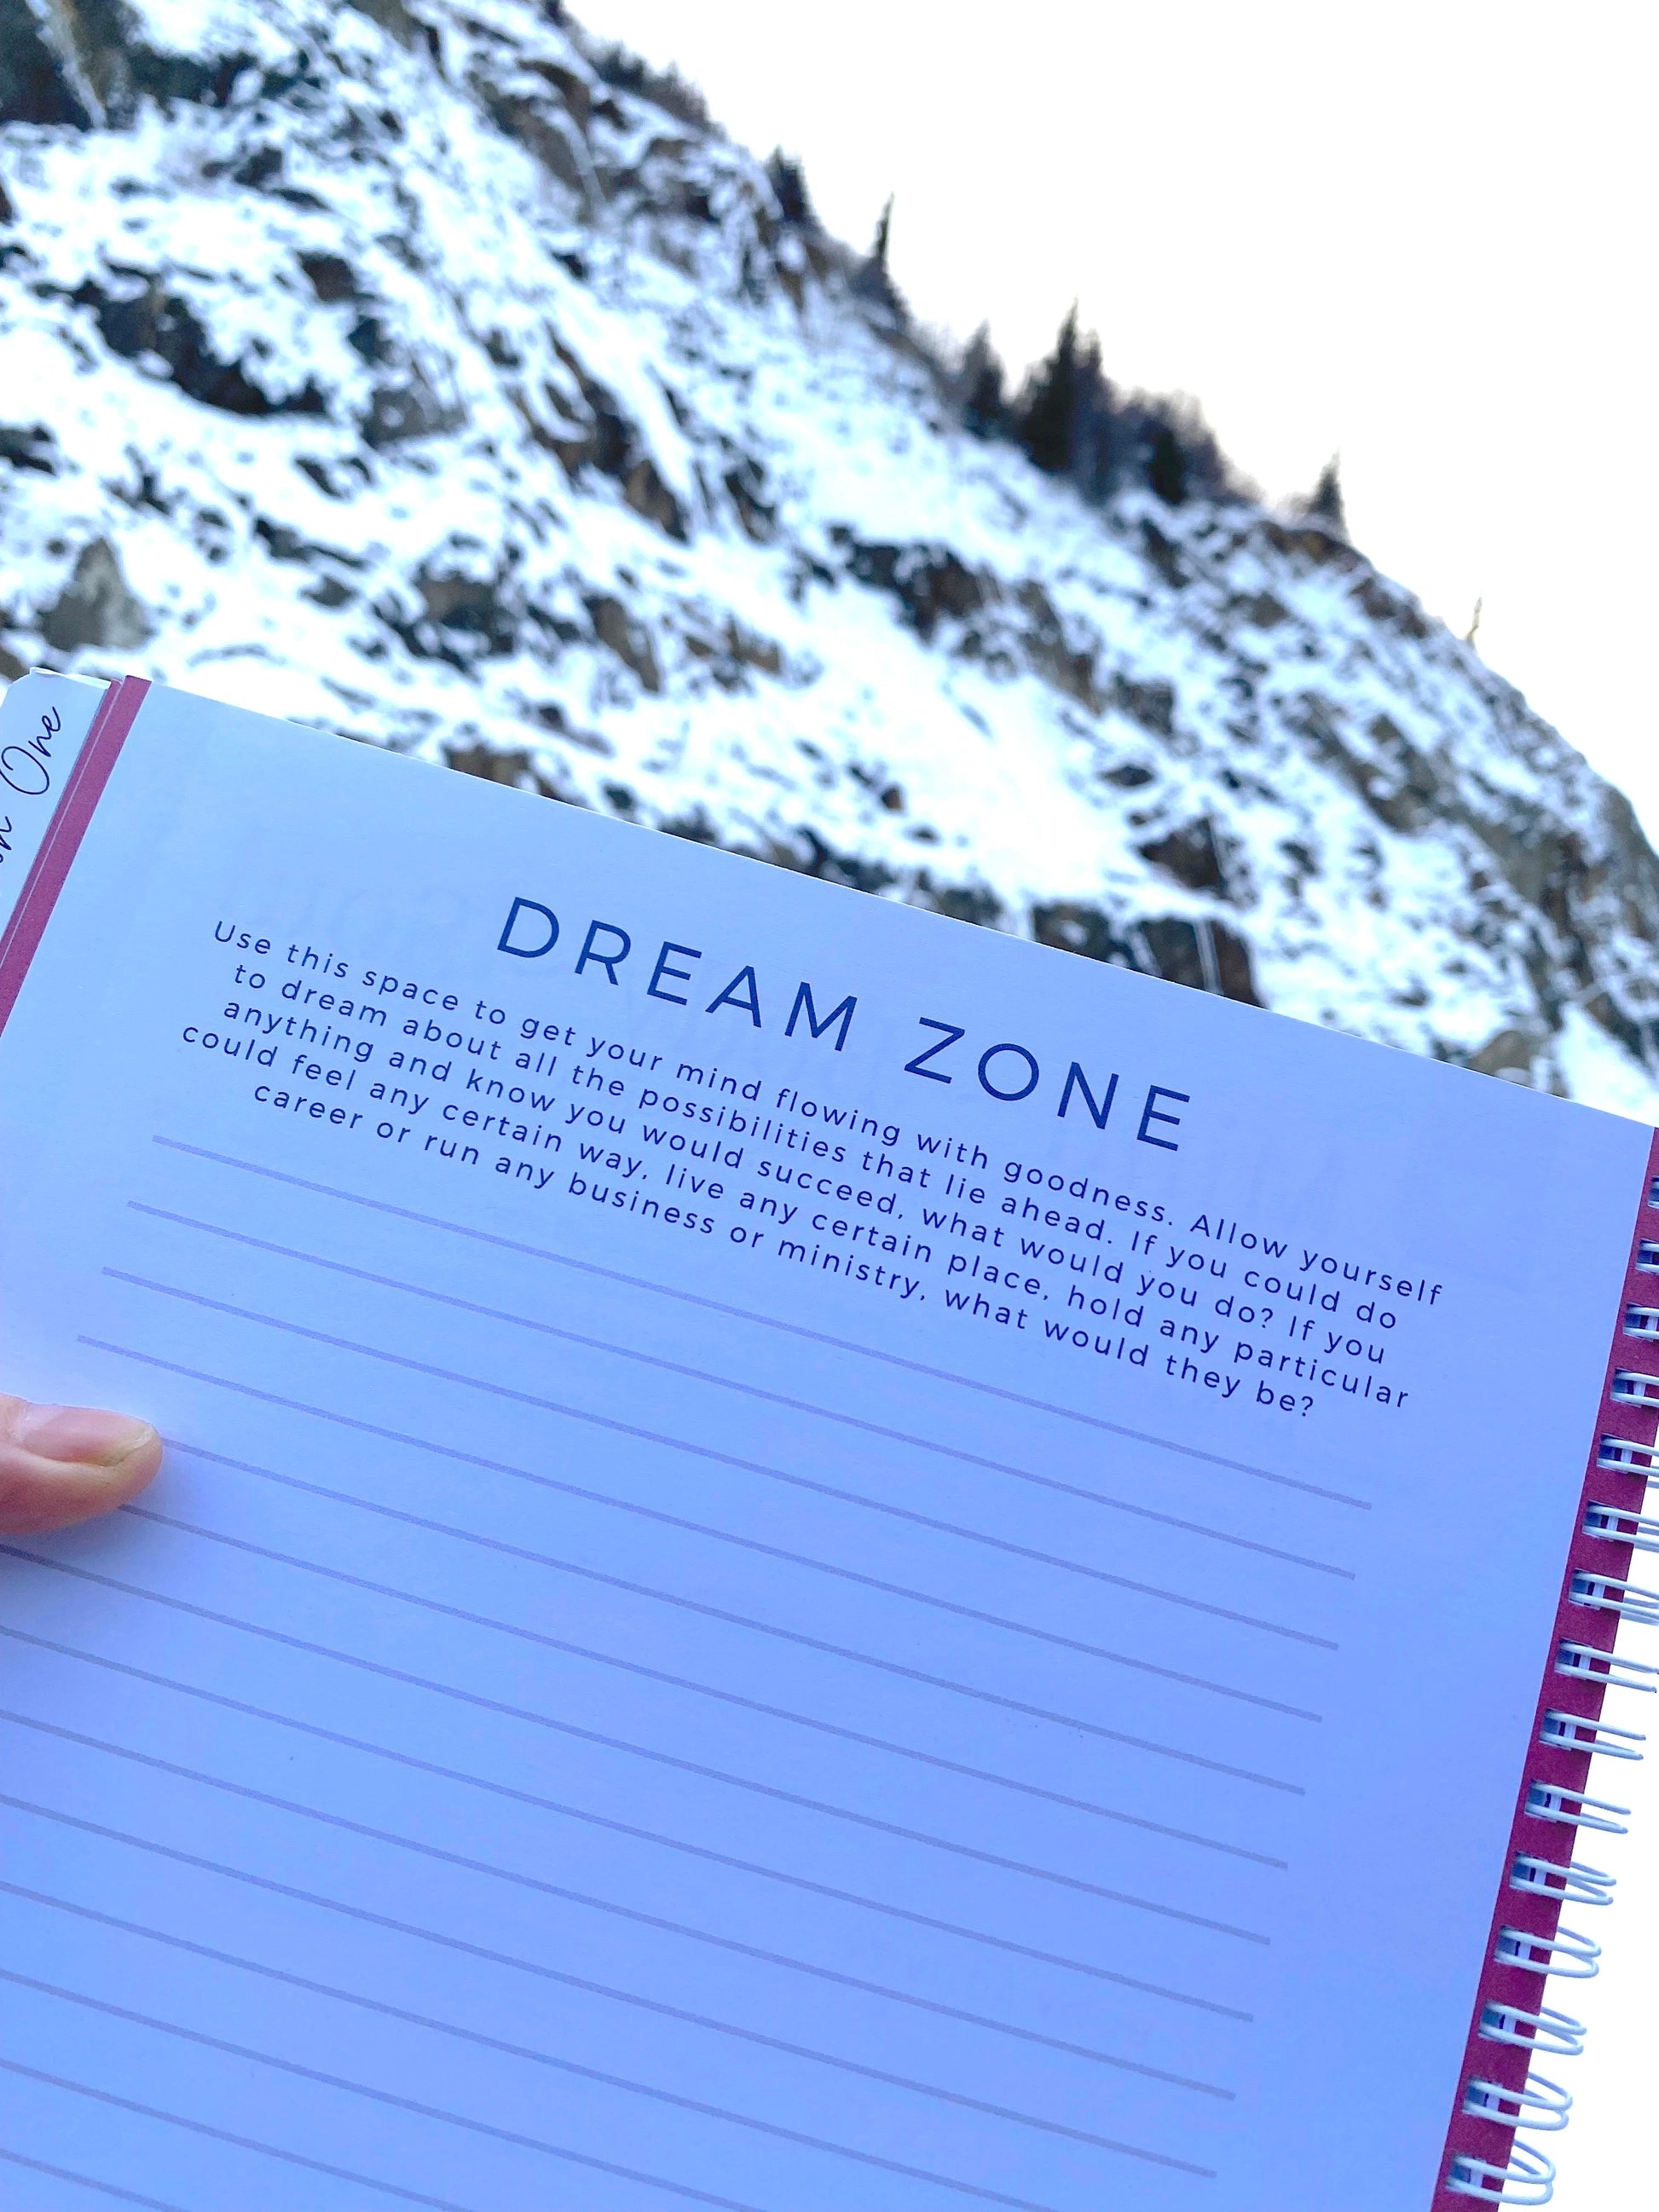 One
DREAM ZONE
Use this space to get your mind flowing with goodness. Allow yourself
to dream about all the possibilities that lie ahead. If you could do
anything and know you would succeed, what would you do? If you
could feel any certain way, live any certain place, hold any particular
career or run any business or ministry, what would they be?